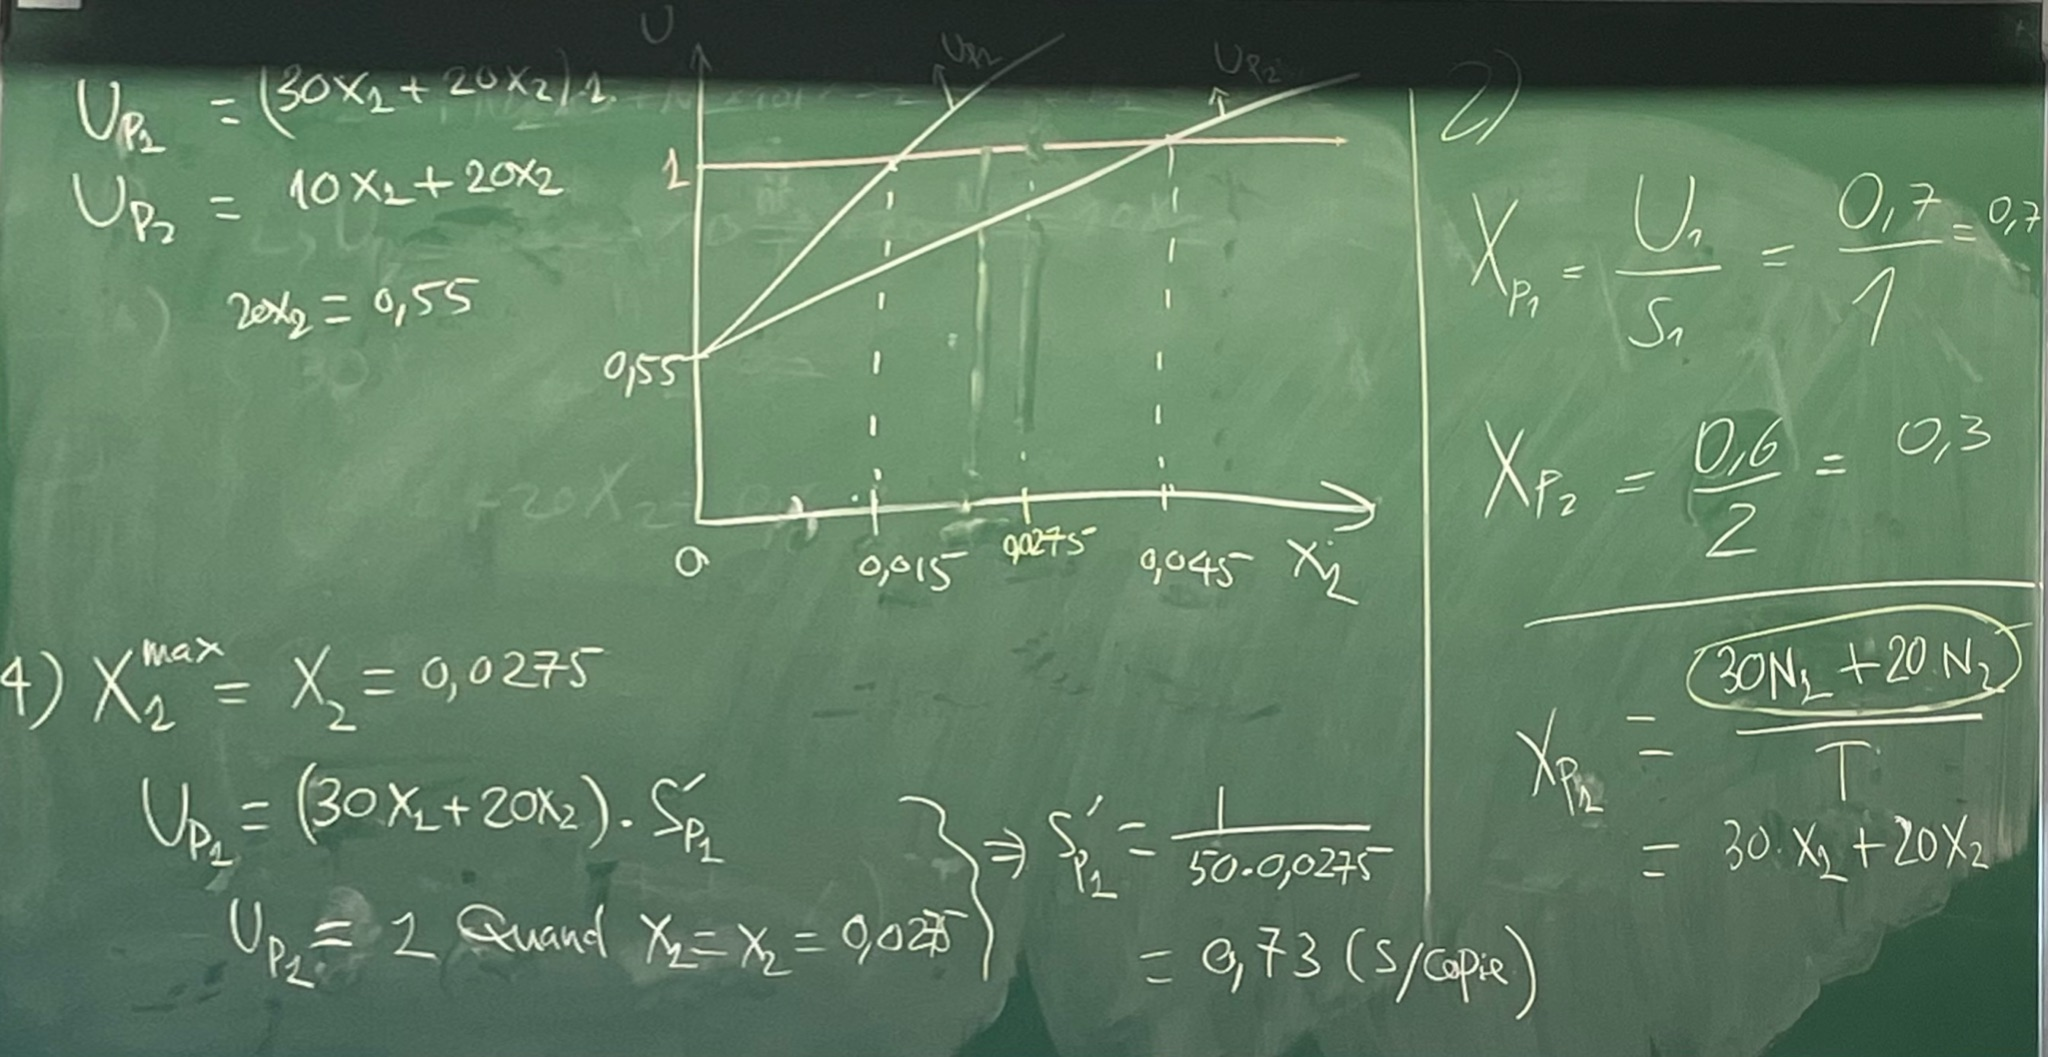 U_P1 = (30X1 + 20X2).1
U_P2 = 10X1 + 20X2
20X2 = 0,55
U
U_P1
U_P2
1
0,55
0
0,015
0,0275
0,045
X1
4) X1^max = X2 = 0,0275
U_P1 = (30X1 + 20X2) . S'_P1
U_P1 = 1 Quand X1 = X2 = 0,0275
⇒ S'_P1 = 1 / 50.0,0275
= 0,73 (s/copie)
2)
X_P1 = U1 / S1 = 0,7 / 1 = 0,7
X_P2 = 0,6 / 2 = 0,3
X_P1 = 30N1 + 20.N2 / T
= 30.X1 + 20X2